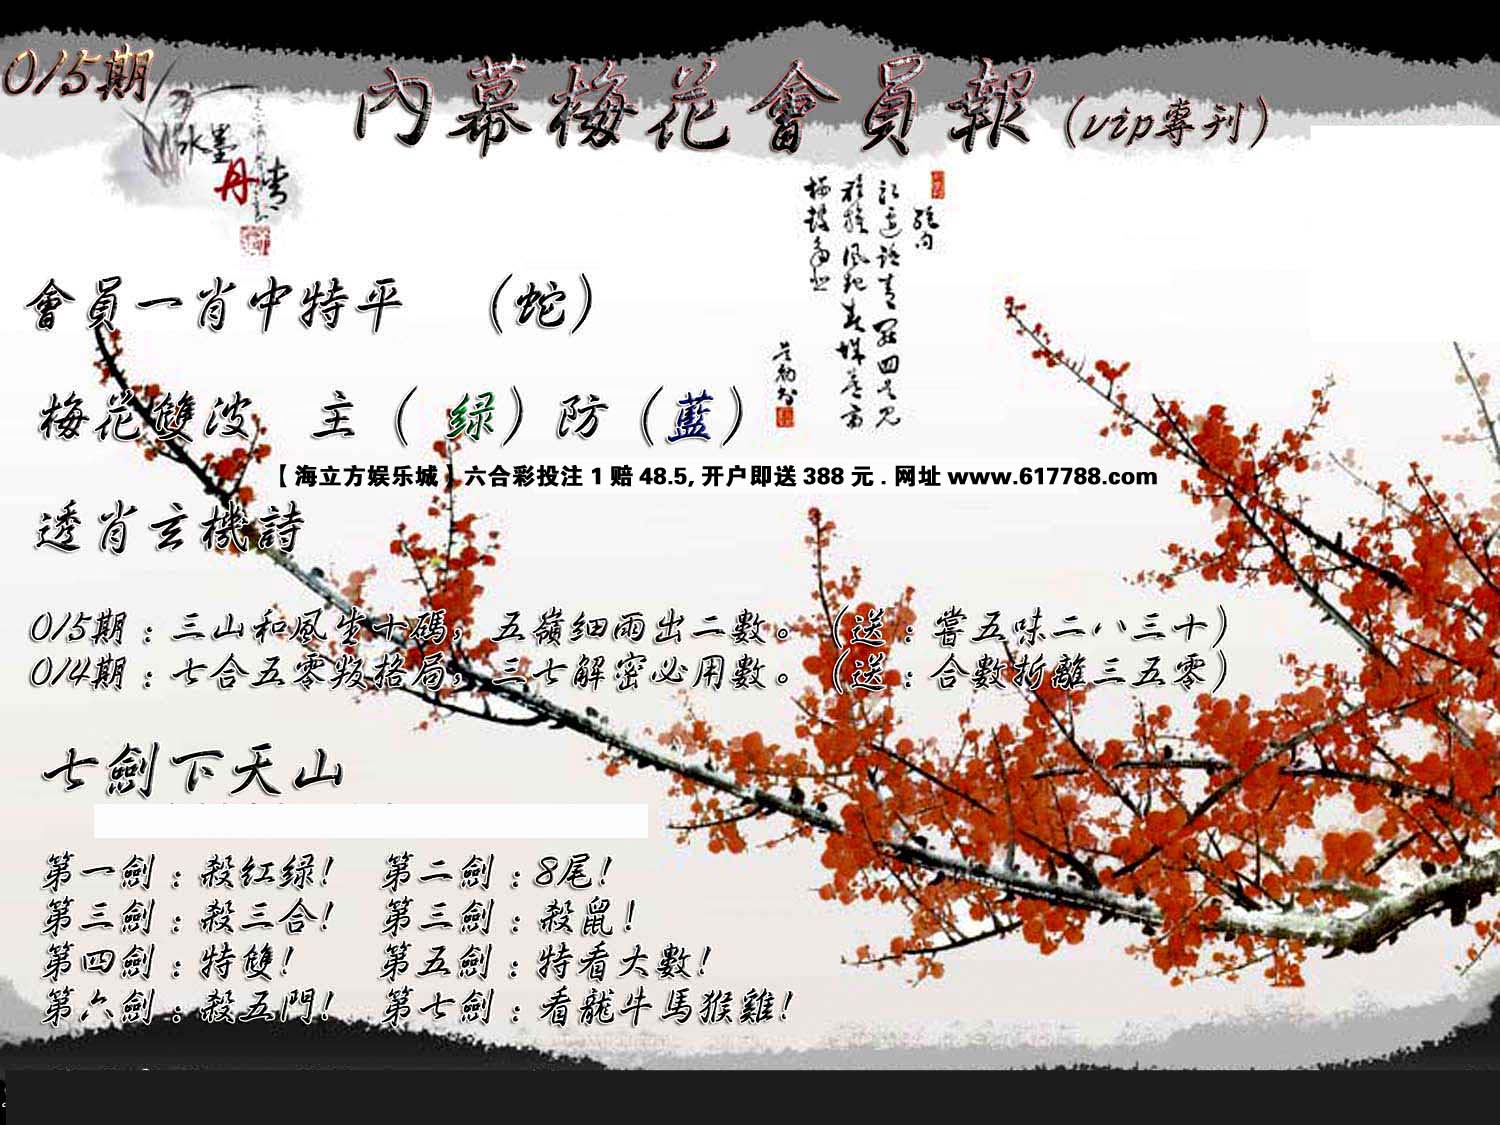 015期
內幕梅花會員報(vip專刊)
水墨
丹青
絕句
會員一肖中特平 (蛇)
梅花雙波 主(绿)防(藍)
【海立方娱乐城】六合彩投注1赔48.5,开户即送388元.网址www.617788.com
透肖玄機詩
015期:三山和風生十碼,五嶺細雨出二數。(送:嘗五味二八三十)
014期:七合五零叛格局,三七解密必用數。(送:合數折離三五零)
七劍下天山
第一劍:殺紅绿! 第二劍:8尾!
第三劍:殺三合! 第三劍:殺鼠!
第四劍:特雙! 第五劍:特看大數!
第六劍:殺五門! 第七劍:看龍牛馬猴雞!